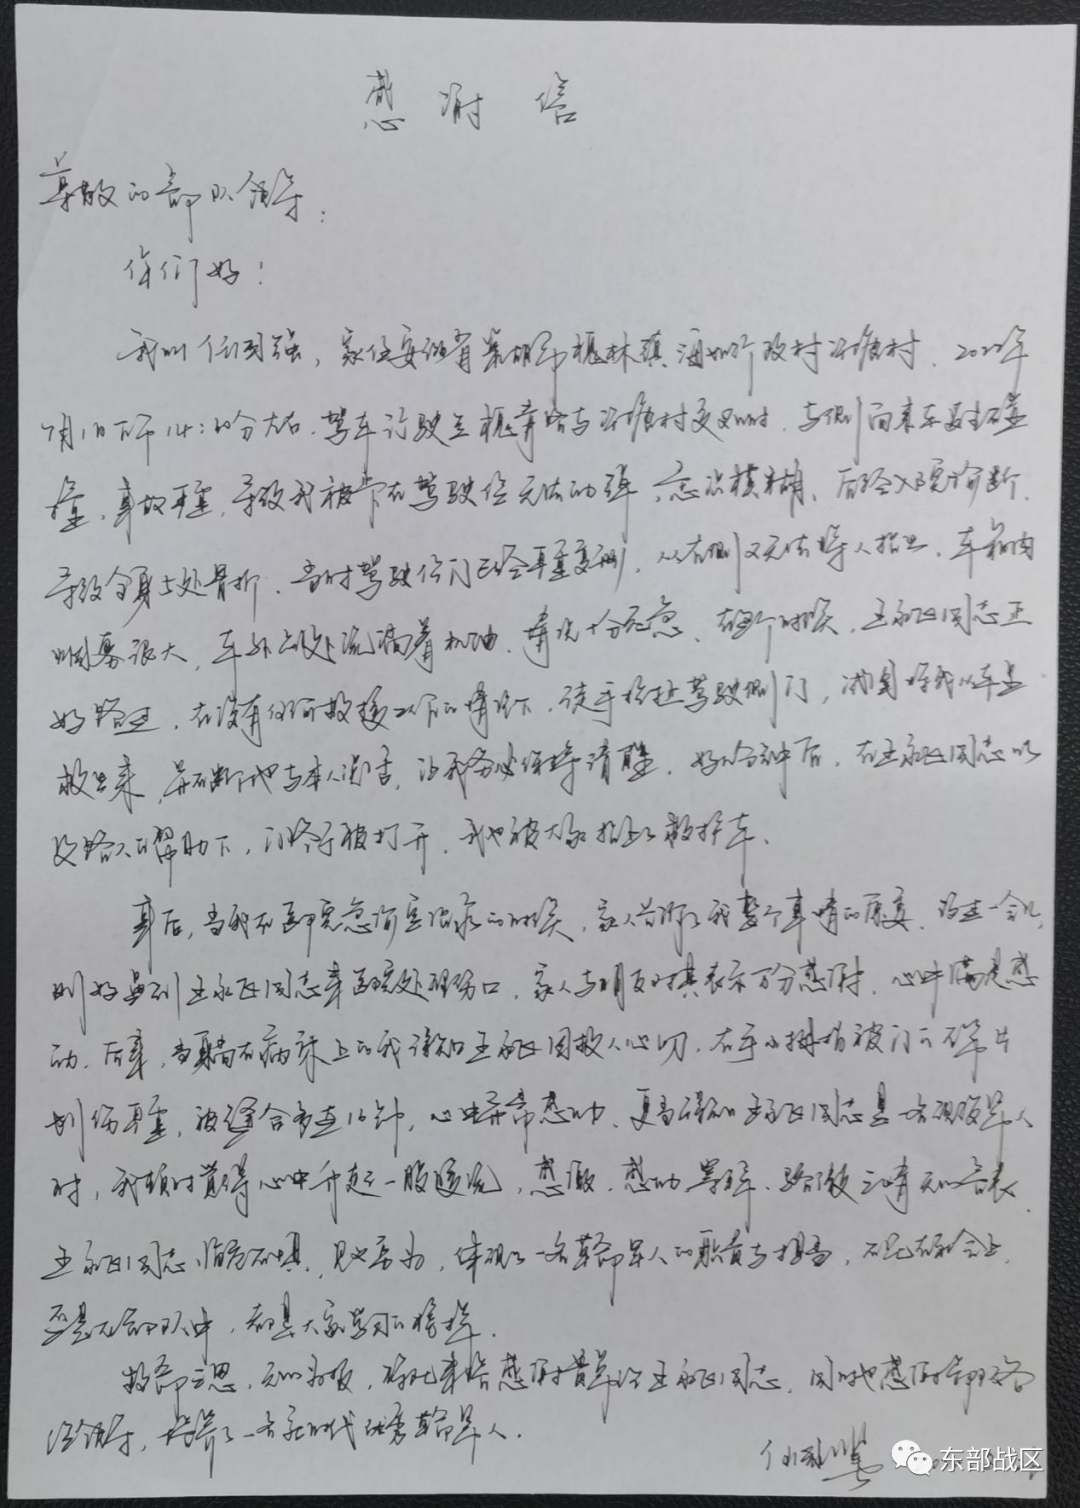 感谢信
尊敬的部队领导：
你们好！
我叫任国强，家住安徽省巢湖市槐林镇海如行政村冯塘村，2022年
7月1日下午14：20分左右，驾车行驶至槐 路与冯塘村交叉口时，与侧面来车发生碰
撞，事故严重，导致我被卡在驾驶位无法动弹，意识模糊，后经入院诊断，
导致全身5处骨折，当时驾驶位门已经严重变形，从右侧又无法将人抬出，车前内
烟雾很大，车外 处流淌着机油，情况十分危急，在这个时候，王永 同志正
好路过，在没有任何救援工具的情况下，徒手拉扯驾驶侧门，试图将我从车里
救出来，并不断地与本人说话，让我务必保持清醒，好几分钟后，在王永 同志以
及路人的帮助下，门终于被打开，我也被大家抬上了救护车。
事后，当我在医院急诊室治疗的时候，家人告诉了我整个事情的原委，没过一会儿，
刚好遇到王永 同志来医院处理伤口，家人与朋友对其表示万分感谢，心中满是感
动，后来，当躺在病床上的我得知王永 因救人心切，右手小拇指被门的碎片
划伤严重，被缝合多达16针，心中异常感动，更当得知王永 同志是一名现役军人
时，我顿时觉得心中升起一股暖流，感激、感动、 、 之情无以言表，
王永 同志临危不惧，见义勇为，体现了一名革命军人的职责与担当，不论在社会上，
还是在部队中，都是大家学习的榜样。
救命之恩，无以为报，特此来信感谢 王永 同志，同时也感谢部队各
级领导，培养了一名新时代优秀革命军人。
任国强
东部战区